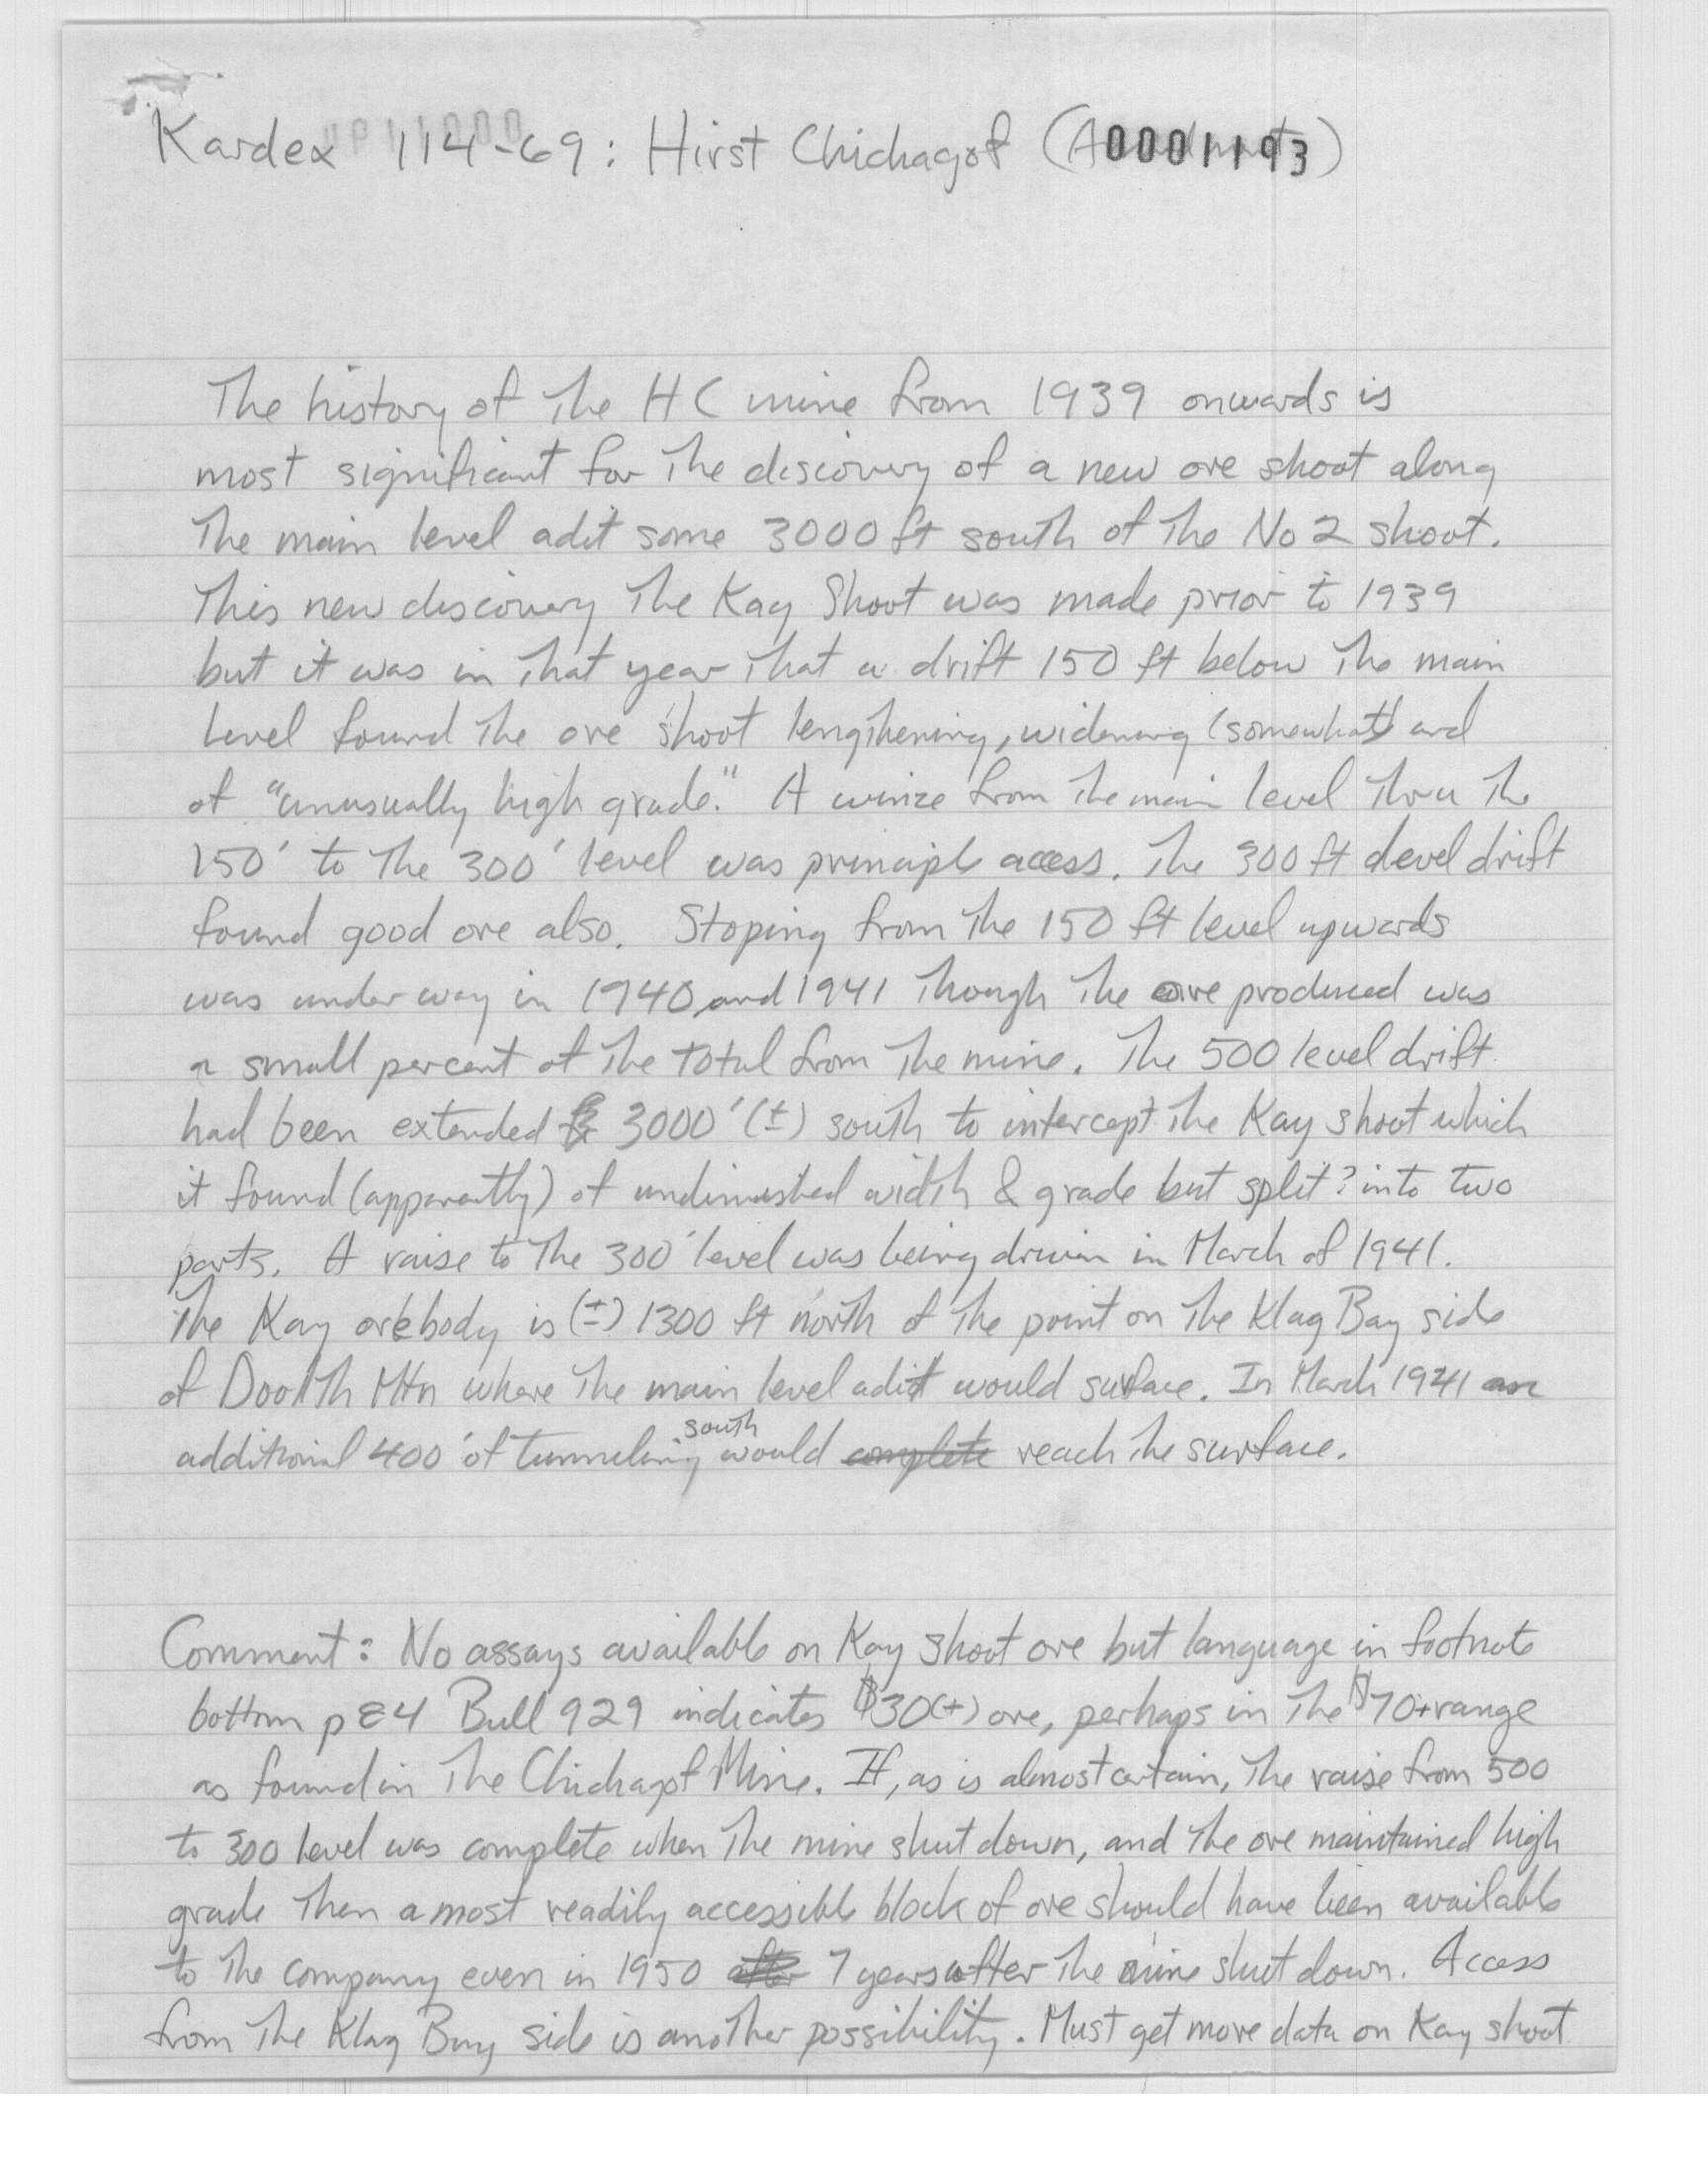 Kardex 114-69: Hirst Chichagof (0001193)
The history of the HC mine from 1939 onwards is
most significant for the discovery of a new ore shoot along
the main level adit some 3000 ft south of the No 2 shoot.
This new discovery the Kay Shoot was made prior to 1939
but it was in that year that a drift 150 ft below the main
level found the ore shoot lengthening, widening (somewhat) and
of "unusually high grade." A winze from the main level thru the
150' to the 300' level was principle access. The 300 ft level drift
found good ore also. Stoping from the 150 ft level upwards
was underway in 1940 and 1941 though the ore produced was
a small percent of the total from the mine. The 500 level drift
had been extended 3000' (±) south to intercept the Kay shoot which
it found (apparently) of undiminished width & grade but split? into two
parts. A raise to the 300' level was being driven in March of 1941.
The Kay orebody is (±) 1300 ft north of the point on the Klag Bay side
of Doolth Mtn where the main level adit would surface. In March 1941 an
additional 400' of tunneling south would complete reach the surface.
Comment: No assays available on Kay shoot ore but language in footnote
bottom p 84 Bull 929 indicates $30(+) ore, perhaps in the $70+ range
as found in the Chichagof Mine. If, as is almost certain, the raise from 500
to 300 level was complete when the mine shut down, and the ore maintained high
grade then a most readily accessible block of ore should have been available
to the company even in 1950 after 7 years after the mine shut down. Access
from the Klag Bay side is another possibility. Must get more data on Kay shoot